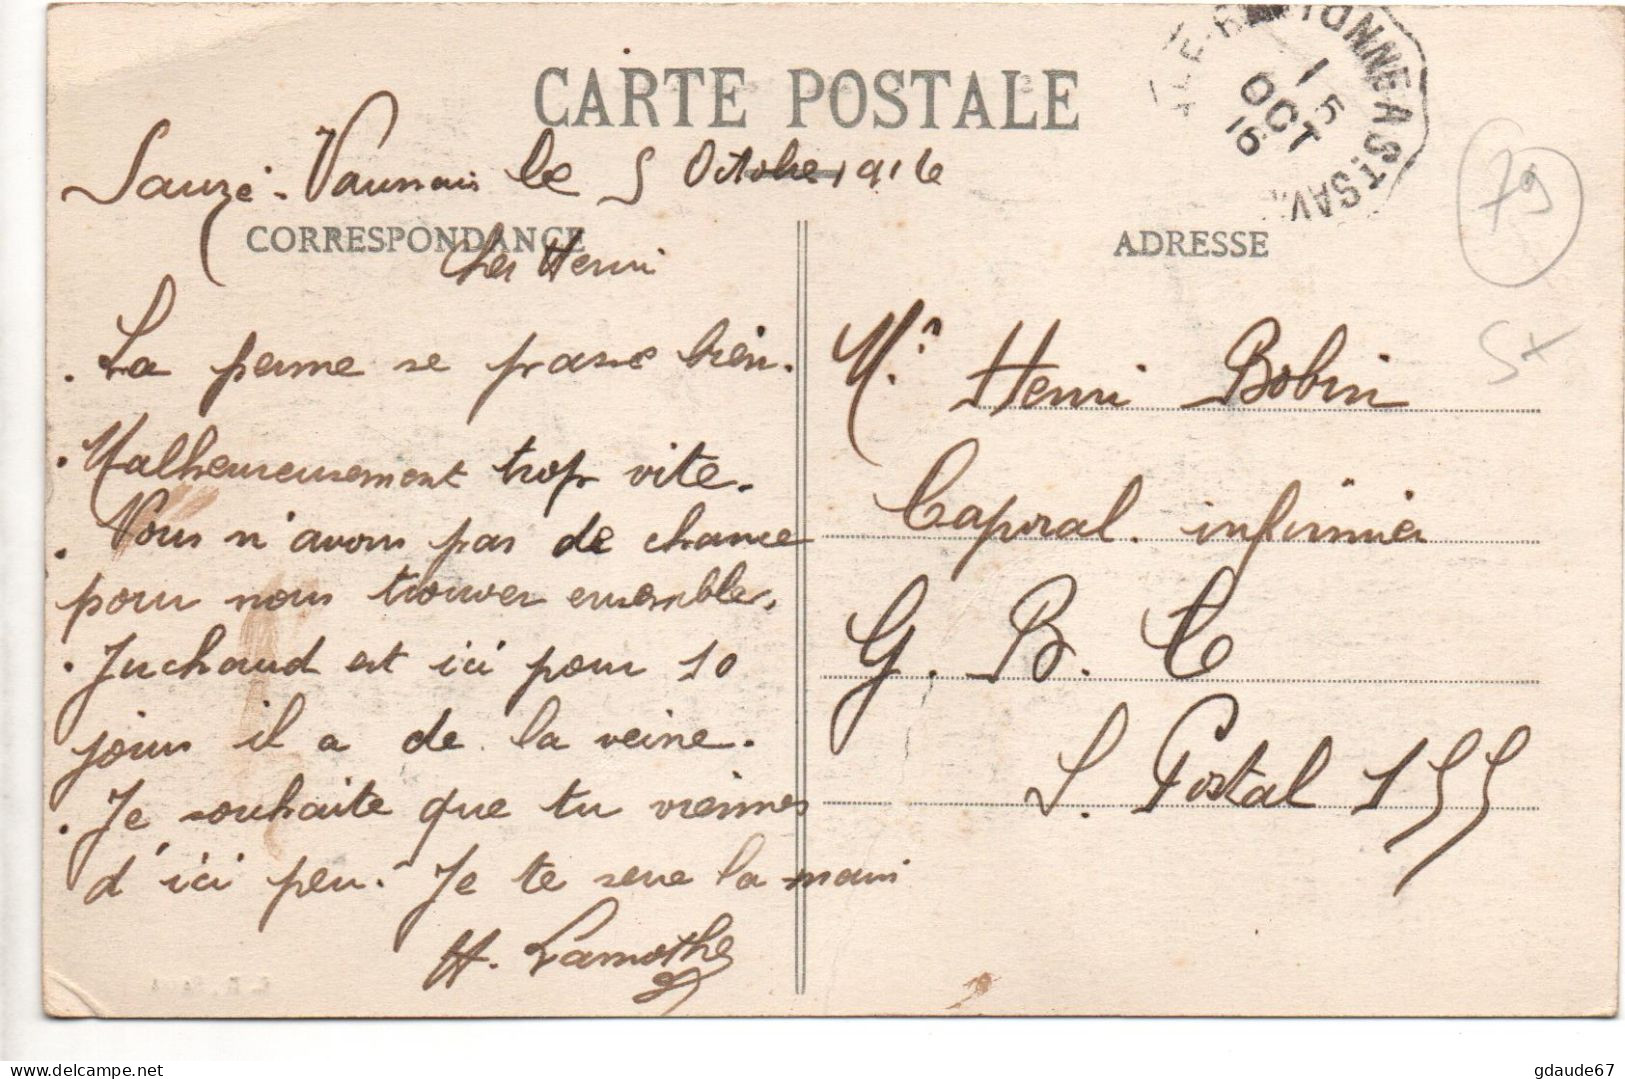 CARTE POSTALE
Sauzé-Vaussais le 5 Octobre 1916
CORRESPONDANCE
Cher Henri
La perme se passe bien.
Malheureusement trop vite.
Nous n'avons pas de chance
pour nous trouver ensemble.
Juchaud est ici pour 10
jours il a de la veine.
Je souhaite que tu viennes
d'ici peu. Je te serre la main
H. Lamothe
ADRESSE
Mr. Henri Bobin
Caporal. infirmier
G. B. C
S. Postal 155
TONNE A ST. SAV
15
OCT
16
79
5x
delcampe.net
gdaude67